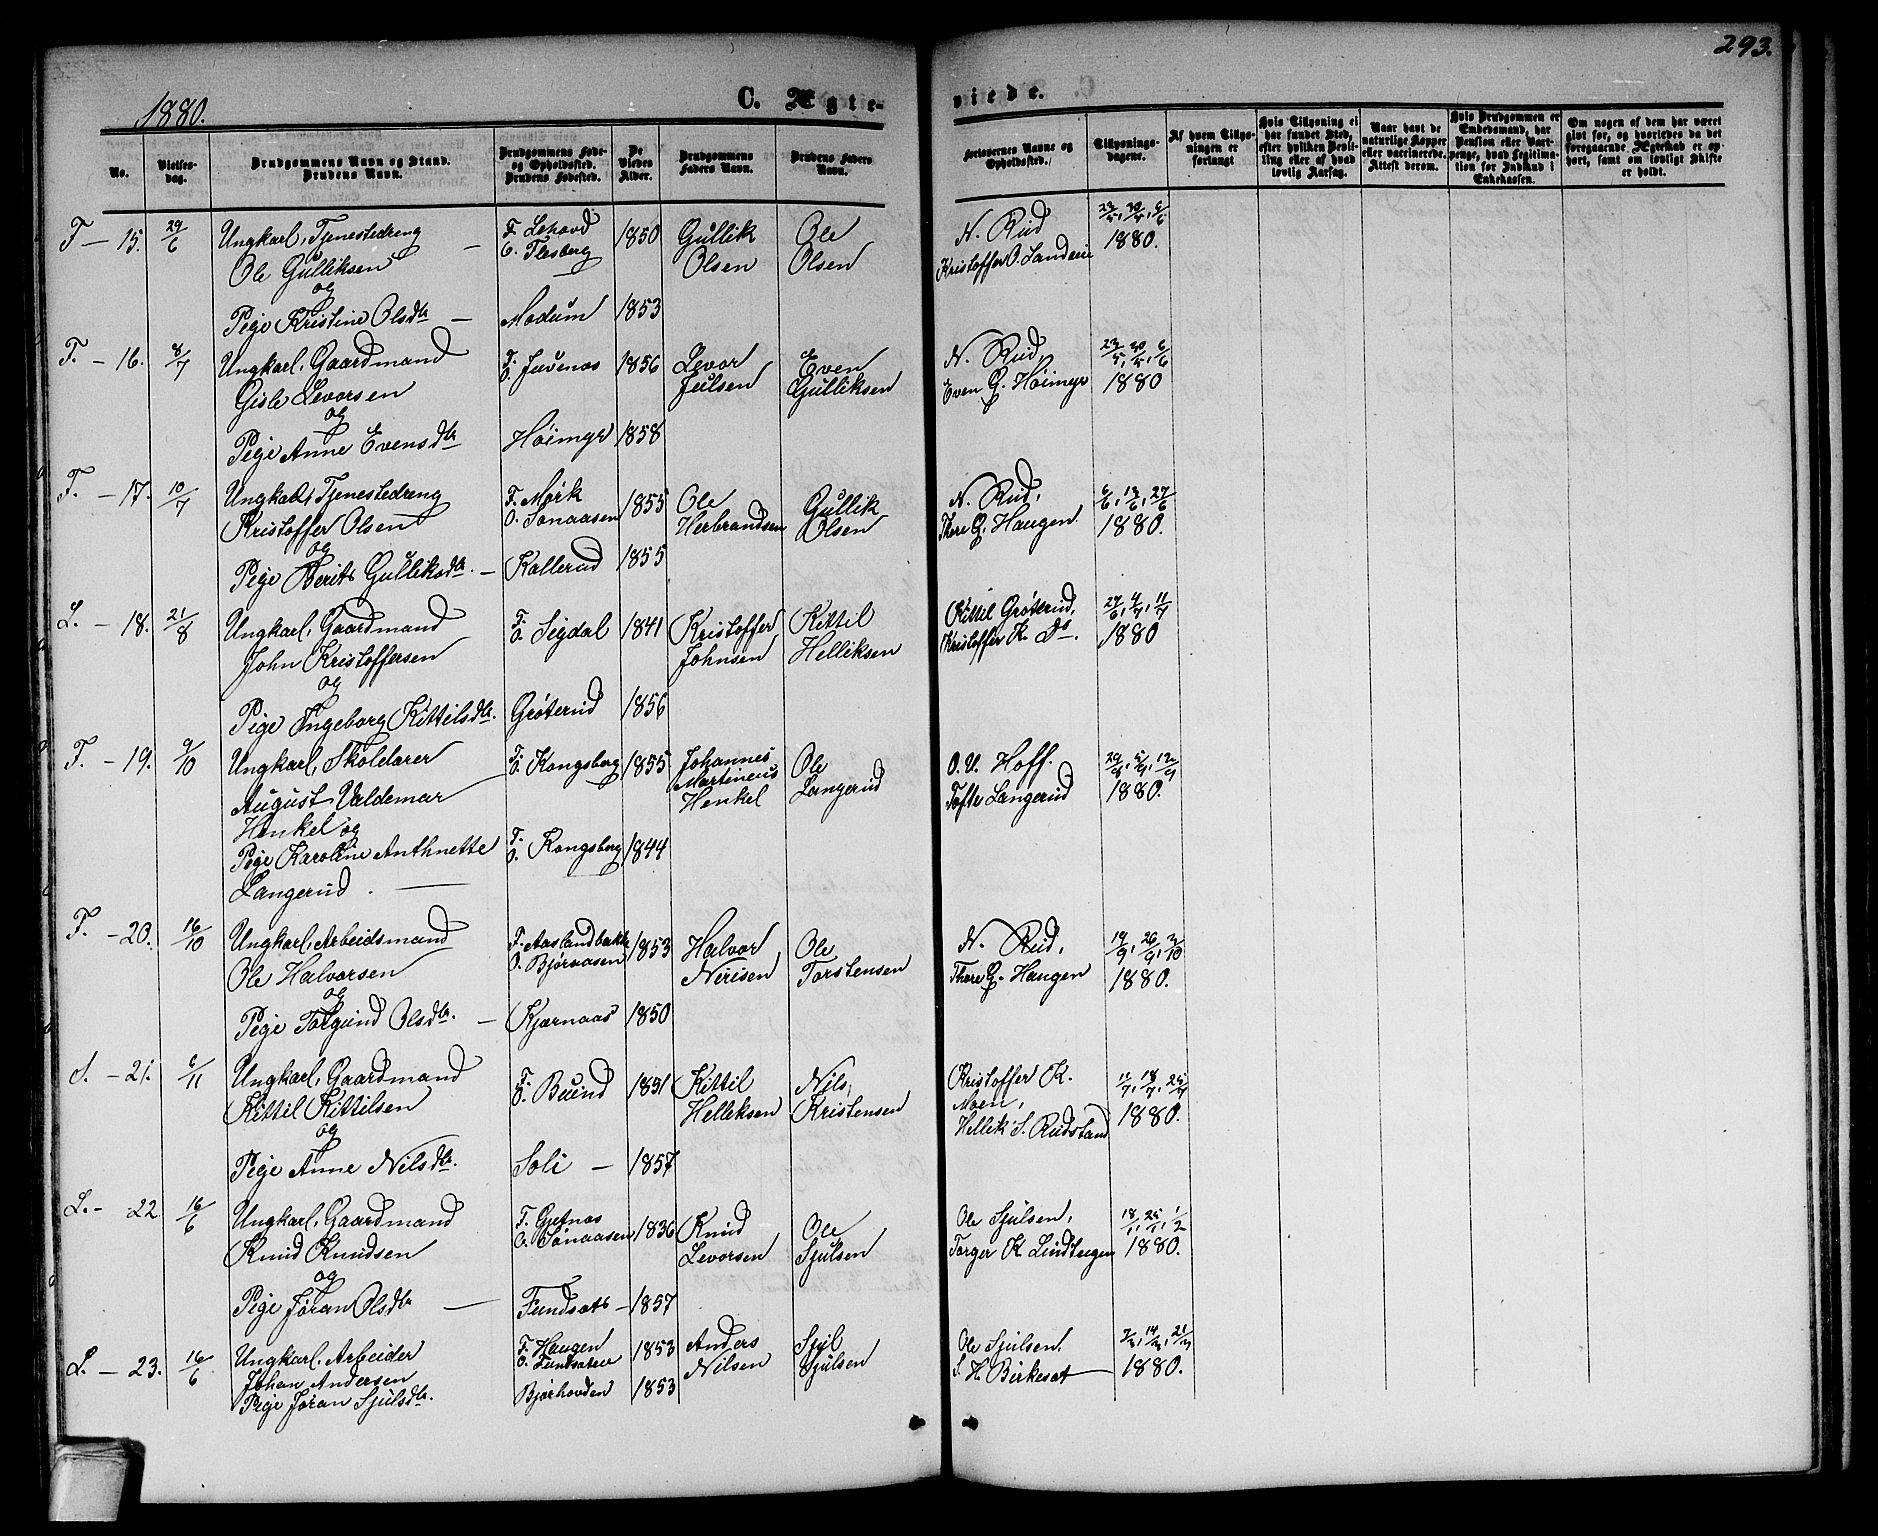 293.
1880.
C. Ægte-
viede.
No.
Vielses-
dag.
Brudgommens Navn og Stand.
Brudens Navn.
Brudgommens Føde-
og Opholdssted.
Brudens Fødested.
De
Viedes
Alder.
Brudgommens
Faders Navn.
Brudens Faders
Navn.
Forlovernes Navne og
Opholdssted.
Tillysnings-
dagene.
Af hvem Tillys-
ningen er
forlangt
Hvis Tillysning ei
har fundet Sted,
efter hvilken Bevil-
ling eller af hvad
lovlig Aarsag.
Naar havt de
naturlige Kopper
eller vaccinerede.
Attest derom.
Hvis Brudgommen er
Embedsmand, har
Pension eller Vart-
penge, hvad Legitima-
tion for Indskud i
Enkekassen.
Om nogen af dem har været
gift før, og hvorledes da det
foregaaende Ægteskab er op-
hørt, samt om lovligt Skifte
er holdt.
F - 15. 29/6 Ungkarl, Tjenestedreng - F. Lehovd 1850 Gullik Ole N. Rud 23/5, 30/5, 6/6
Ole Gulliksen O. Flesberg Olsen Olsen Kristoffer O. Landeie 1880.
og
Pige Kristine Olsdtr - Modum 1853
F. - 16. 8/7 Ungkarl, Gaardmand F. O. Juvenes 1856 Levor Even N. Rud, 23/5, 30/5, 6/6
Gisle Levorsen Juulsen Gulliksen Even G. Høimyr 1880
og
Pige Anne Evensdtr Høimyr 1858
F. - 17. 10/7 Ungkarl, Tjenestedreng F. Mørk 1855 Ole Gullik N. Rud, 6/6, 13/6, 27/6
Kristoffer Olsen O. Tonaasen Herbrandsen Olsen Thore G. Haugen 1880.
og
Pige Berit Gulliksdtr. - Kallerud 1855
L. - 18. 21/8 Ungkarl, Gaardmand F. O. Sigdal 1841 Kristoffer Kittil Kittil Grøterud, 27/6, 4/7, 11/7
John Kristoffersen Johnsen Helliksen Kristoffer K. Do. 1880
og
Pige Ingeborg Kittilsdtr. Grøterud 1856
F. - 19. 9/10 Ungkarl, Skolelærer F. O. Kongsberg 1855 Johannes Ole O. V. Hoff. 29/8, 5/9, 12/9
August Valdemar Martineus Langerud Tofte Langerud 1880.
Henkel og Henkel
Pige Karoline Anthnette F. O. Kongsberg 1844
Langerud. -
F. - 20. 16/10 Ungkarl, Arbeidsmand F. Aaslandbakke 1853 Halvor Ole N. Rud, 19/9, 26/9, 3/10
Ole Halvorsen O. Bjørnaasen Nerisen Torstensen Thore G. Haugen 1880.
og
Pige Torgund Olsdtr. - Kjørnaas 1850
S. - 21. 6/11 Ungkarl, Gaardmand F. O. Buind 1851 Kittil Nils, Kristoffer K. 11/7, 18/7, 25/7
Kittil Kittilsen Helliksen Kristensen Moen, 1880.
og Hellik S. Rudsland
Pige Anne Nilsdtr. Soli - 1857
L. - 22 16/6 Ungkarl, Gaardmand F. Gjetnas 1836 Knud Ole Ole Sjulsen, 18/1, 25/1, 1/2
Knud Knudsen O. Tonaasen Levorsen Sjulsen Torger K Lindteigen 1880.
og
Pige Jøran Olsdtr - Fundsat - 1857
L. - 23. 16/6 Ungkarl, Arbeider F. Haugen 1853 Anders Sjul Ole Sjulsen, 7/3, 14/3, 21/3
Johan Andersen O. Fundsateie Nilsen Sjulsen S. H. Birkesat 1880.
Pige Jøran Sjulsdtr. Bjørhovden 1853